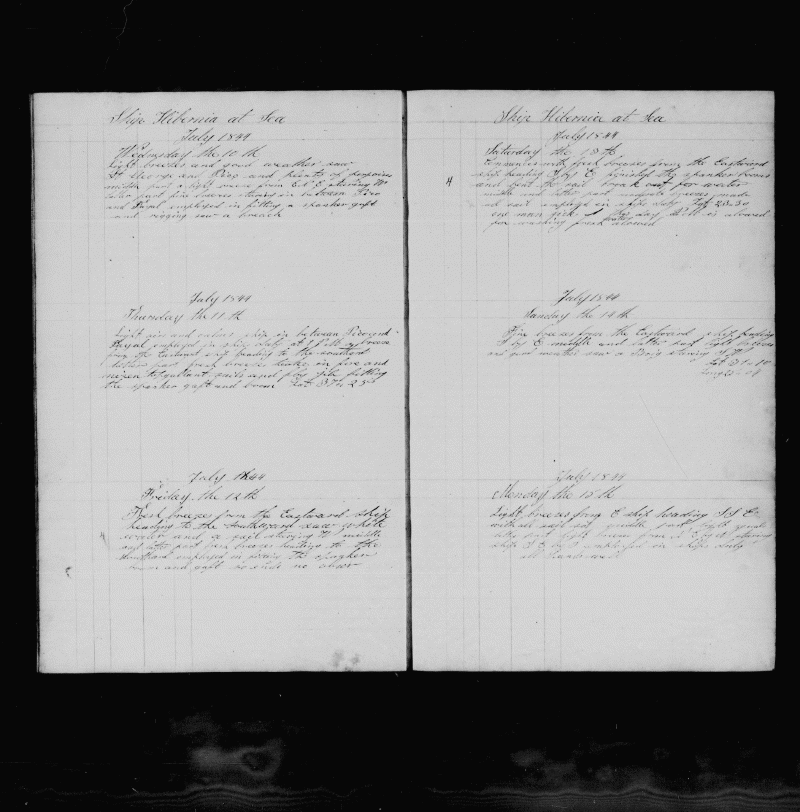 Ship Hibernia at Sea
July 1844
Wednesday the 10th
Light breezes and good weather saw
St George and Pico and plenty of porpoises
middle part a light breeze from E N E steering W
latter part fine breezes in between Pico
and Fayal employed in fitting a spanker gaft
and rigging saw a breach
July 1844
Thursday the 11th
Light airs and calms ship in between Pico and
Fayal employed in ships duty at 7 P M a breeze
from the Eastward ship heading to the southard
latter part fresh breezes in fore and
mizen to gallant sails and flying jib fitting
the spanker gaft and boom Lat 37 25
July 1844
Friday the 12th
Fresh breezes from the Eastward ship
heading to the Southward saw a
and a sail steering W middle
and latter part fresh breezes heading to the
Southard employed in fixing the spanker
boom and gaft so ends no obser
Ship Hibernia at Sea
July 1844
Saturday the 13th
4
Commences with fresh breezes from the Eastward
ship heading S by E finished the spanker boom
and bent the sail break out for water
middle and latter part moderate breezes made
all sail employed in ships duty Lat 33-30
one man sick day is alowed
for washing fresh alowed
July 1844
Sunday the 14th
Fine breezes from the Eastward ship heading
S by E middle and latter part light breezes
and good weather saw a Brig steering
Lat 31-10
Long 23-04
July 1844
Monday the 15th
Light breezes from E ship heading S S E
with all sail set middle part light
latter part light breeze from steering
ship S E by employed in ships duty
all hands well